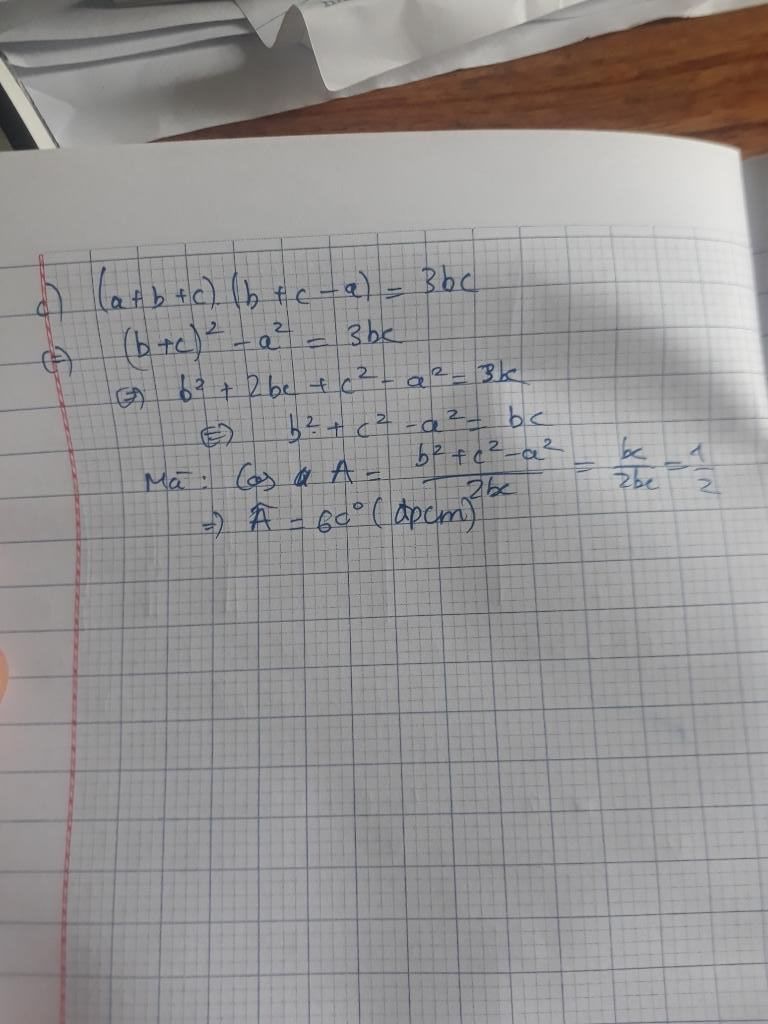 c) (a+b+c) (b+c-a) = 3bc
⇔ (b+c)² - a² = 3bc
⇔ b² + 2bc + c² - a² = 3bc
⇔ b² + c² - a² = bc
Mà : Cos A = \frac{b² + c² - a²}{2bc} = \frac{bc}{2bc} = \frac{1}{2}
⇒ Â = 60° (đpcm)